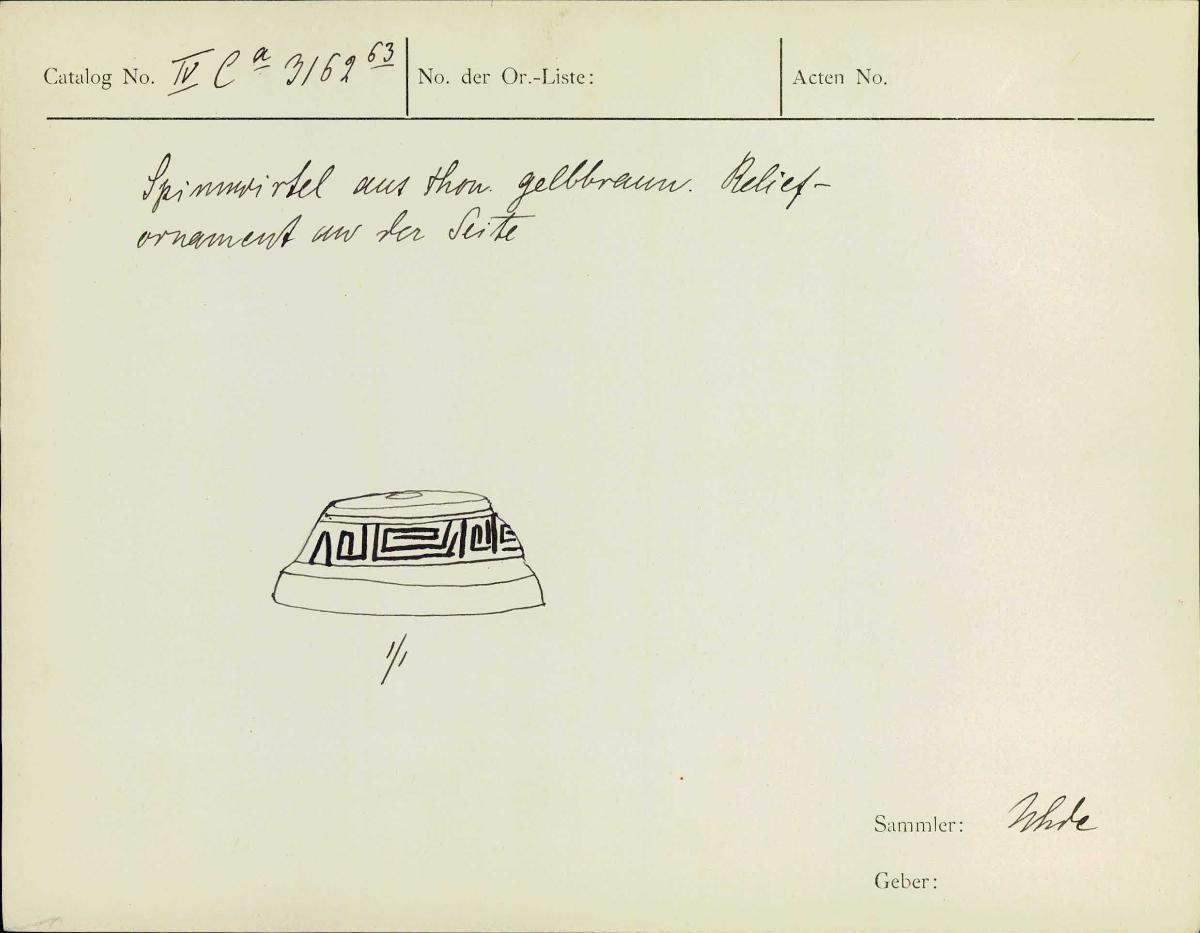 Catalog No. IV Ca 3162 63
No. der Or.-Liste:
Acten No.
Spinnwirtel aus Thon. gelbbraun. Relief-
ornament an der Seite
1/1
Sammler: Uhde
Geber: